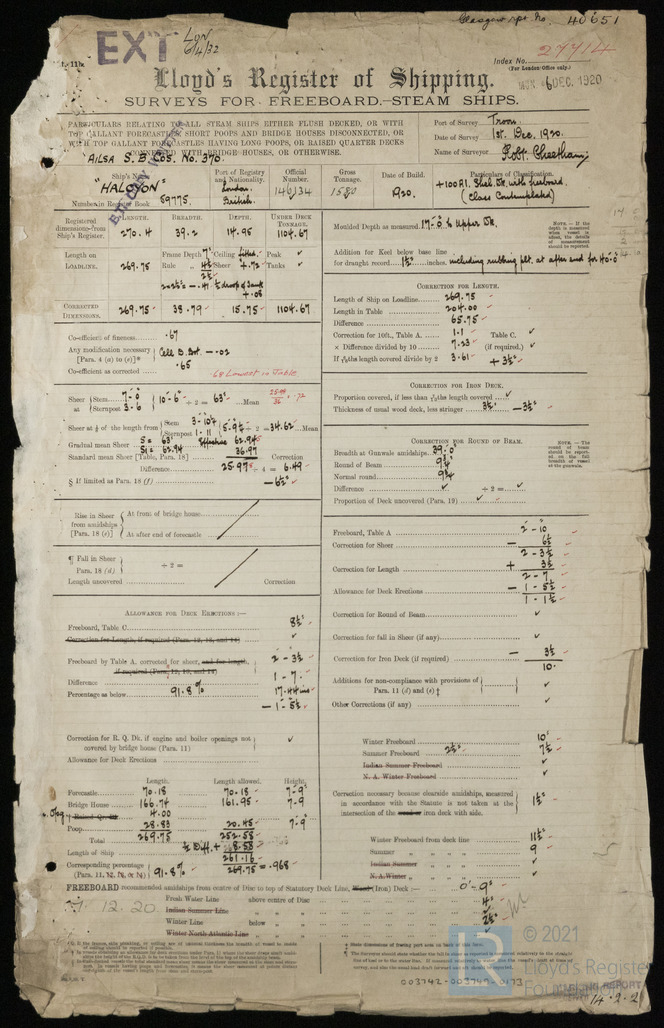 Glasgow rpt No. 40651
EXT
Lon
6/4/32
Index No. 27714
(For London Office only.)
MON. 6 DEC. 1920
Lloyd's Register of Shipping.
SURVEYS FOR FREEBOARD.—STEAM SHIPS.
PARTICULARS RELATING TO ALL STEAM SHIPS EITHER FLUSH DECKED, OR WITH
TOP GALLANT FORECASTLES, SHORT POOPS AND BRIDGE HOUSES DISCONNECTED, OR
WITH TOP GALLANT FORECASTLES HAVING LONG POOPS, OR RAISED QUARTER DECKS
CONNECTED WITH BRIDGE HOUSES, OR OTHERWISE.
Port of Survey Troon
Date of Survey 1st. Dec. 1920.
Name of Surveyor Robt. Cheetham
AILSA S. B. Cos. No. 376.
Ship's Name
"HALCYON"
Number in Register Book 89775
Port of Registry and Nationality.
London.
British.
Official Number.
Gross Tonnage.
1580
Date of Build.
1920.
Particulars of Classification.
+100A1. Shel. Dk. with freeboard.
(Class Contemplated)
Registered dimensions from Ship's Register.
LENGTH. BREADTH. DEPTH. UNDER DECK TONNAGE.
270.4 39.2 14.95 1104.67
Length on LOADLINE. 269.75
Frame Depth 7" Ceiling fitted. Peak ✓
Rule 4½ Sheer + .72 Tanks ✓
CORRECTED DIMENSIONS. 269.75 38.79 15.75 1104.67
Moulded Depth as measured 17-0 to Upper Dk.
NOTE.—If the depth is measured when vessel is afloat, the details of measurement should be reported.
Addition for Keel below base line
for draught record 1½ inches. including rubbing plt. at after end for 40-0
CORRECTION FOR LENGTH.
Length of Ship on Loadline 269.75
Length in Table 204.00
Difference 65.75
Correction for 10ft., Table A. 1.1 Table C. ✓
× Difference divided by 10 7.23 (if required.) ✓
If 6/10ths length covered divide by 2 3.61 + 3½
Co-efficient of fineness .67
Any modification necessary [Para. 4 (a) to (e)]* Cell. D. Bot. — .02
Co-efficient as corrected .65
.68 Lowest in Table
Sheer at Stem 7-0
Sternpost 3-6
10-6 ÷ 2 = 63 Mean
Sheer at ⅛ of the length from Stem 3-10½
Sternpost 1-11
5-9½ ÷ 2 = 34.62 Mean
Gradual mean Sheer Effective 62.94
Standard mean Sheer [Table, Para. 18] 36.97
Correction
Difference 25.97 ÷ 4 = 6.49
§ If limited as Para. 18 (f) — 6½
CORRECTION FOR IRON DECK.
Proportion covered, if less than 7/10ths length covered ✓
Thickness of usual wood deck, less stringer 3½ — 3½
CORRECTION FOR ROUND OF BEAM.
Breadth at Gunwale amidships 39.0
Round of Beam 9¾
Normal round 9¾
Difference ✓ ÷ 2 = ✓
Proportion of Deck uncovered (Para. 19) ✓ ✓
NOTE.—The round of beam should be reported on the full breadth of vessel at the gunwale.
Rise in Sheer from amidships [Para. 18 (e)]
At front of bridge house
At after end of forecastle
¶ Fall in Sheer Para. 18 (d) ÷ 2 =
Length uncovered Correction
Freeboard, Table A 2-10
Correction for Sheer — 6½
2-3½
Correction for Length + 3½
2-7
Allowance for Deck Erections — 1-5½
1-1½
Correction for Round of Beam ✓
Correction for fall in Sheer (if any) ✓
Correction for Iron Deck (if required) — 3½
10.
Additions for non-compliance with provisions of Para. 11 (d) and (e)‡ ✓
Other Corrections (if any) ✓
ALLOWANCE FOR DECK ERECTIONS:—
Freeboard, Table C. 8½
Correction for Length, if required (Para. 12, 13, and 14) ✓
Freeboard by Table A. corrected for sheer, and for length, if required (Para. 12, 13, and 14) 2-3½
Difference 1-7.
Percentage as below 91.8% 17.44 ins
— 1-5½
Correction for R. Q. Dk. if engine and boiler openings not covered by bridge house (Para. 11) ✓
Allowance for Deck Erections
Length. Length allowed. Height.
Forecastle 70.18 70.18 7-9
Bridge House 166.74 161.95 7-9
Raised Qr. Dk. 4.00
Poop 28.83 20.45 7-9
Total 269.75 252.58
½ Diff. + 8.58
Length of Ship 261.16
269.75 = .968
Corresponding percentage (Para. 11, 12, 13, or 14) 91.8%
Winter Freeboard 10
Summer Freeboard 2½ 7½
Indian Summer Freeboard ✓
N. A. Winter Freeboard ✓
Correction necessary because clearside amidships, measured in accordance with the Statute is not taken at the intersection of the wood or iron deck with side. 1½
Winter Freeboard from deck line 11½
Summer " " " " 9
Indian Summer " " " " ✓
N.A. Winter " " " " ✓
FREEBOARD recommended amidships from centre of Disc to top of Statutory Deck Line, Wood (Iron) Deck:— 0-9
Fresh Water Line above centre of Disc 4
Indian Summer Line " "
Winter Line below " 2½
Winter North Atlantic Line " "
12.20
003742-003747-0173
© 2021
Lloyd's Register
Foundation